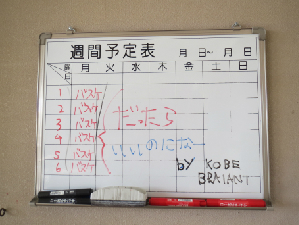 週間予定表 月 日〜 月 日
曜日 月 火 水 木 金 土 日
1 バスケ
2 バスケ
3 バスケ
4 バスケ
5 バスケ
6 バスケ
だったら
いいのにな
by KOBE
BRAIANT